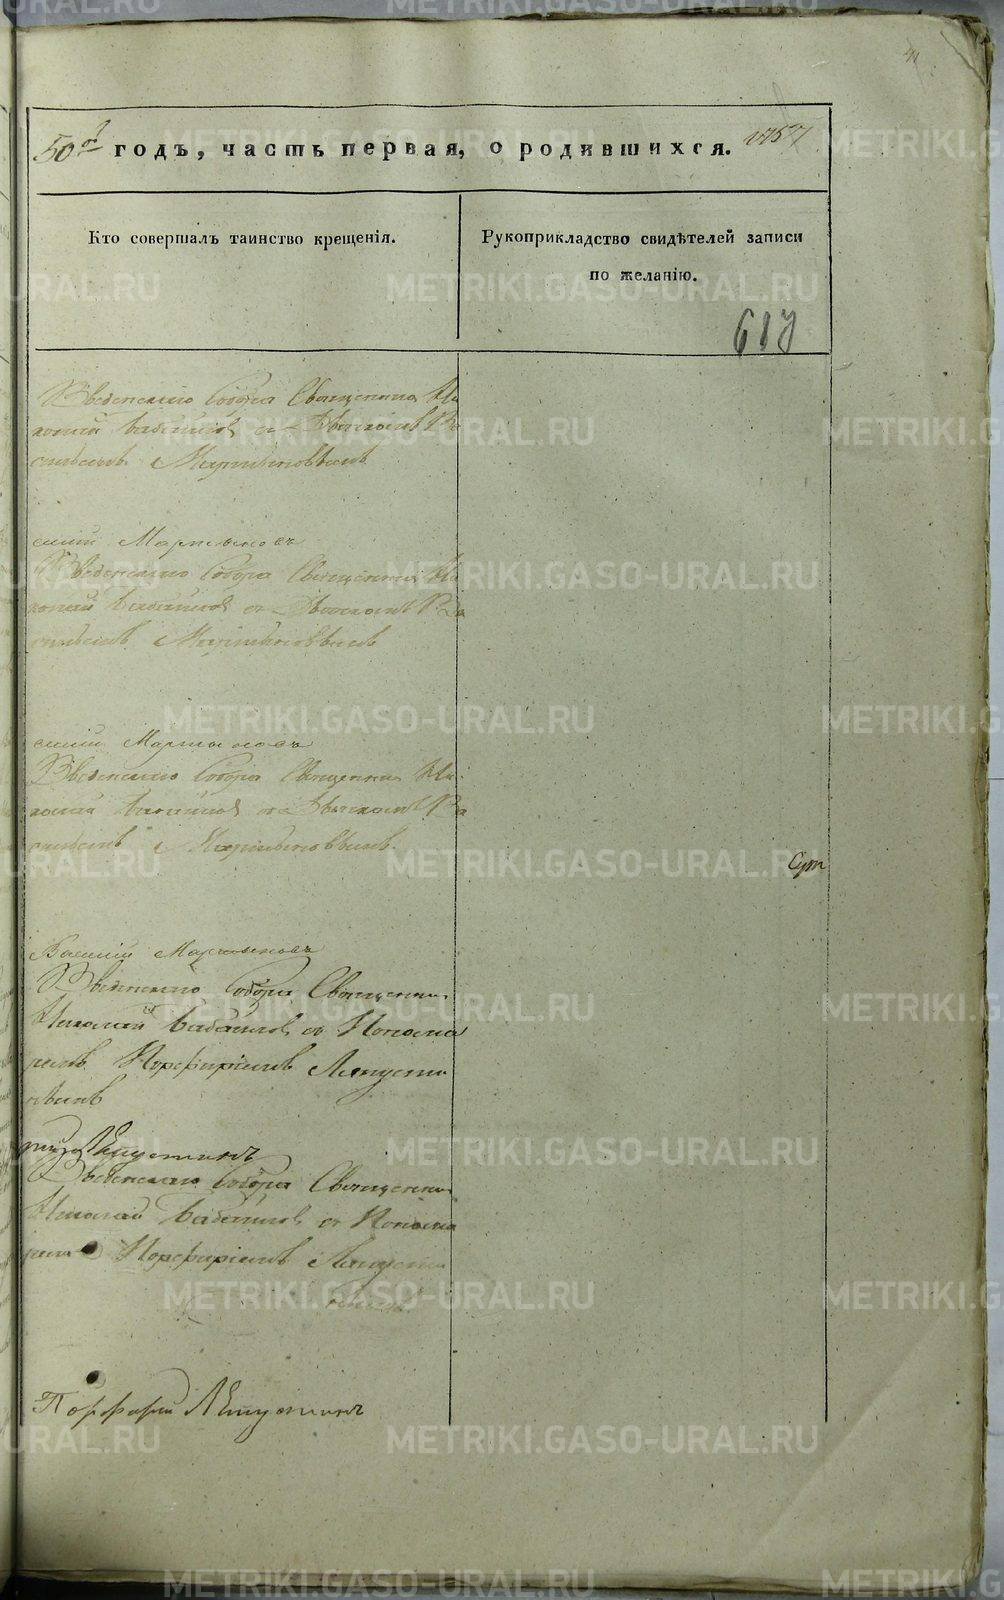 50ой годъ, часть первая, о родившихся.
Кто совершалъ таинство крещенія.
Рукоприкладство свидѣтелей записи
по желанію.
617
Введенскаго Собора Священникъ Ни
колай Бабайловъ съ Дьячкомъ Ва
силіемъ Мартыновымъ
силій Мартыновъ
Введенскаго Собора Священникъ Ни
колай Бабайловъ съ Дьячкомъ Ва
силіемъ Мартыновымъ
силій Мартыновъ
Введенскаго Собора Священникъ Ни
колай Бабайловъ съ Дьячкомъ Ва
силіемъ Мартыновымъ
Сут
Василій Мартыновъ
Введенскаго Собора Священникъ
Николай Бабайловъ съ Понома
ремъ Порфиріемъ Ляпусти
нымъ
Ляпустинъ
Введенскаго Собора Священникъ
Николай Бабайловъ съ Понома
ремъ Порфиріемъ Ляпусти
нымъ
Порфирій Ляпустинъ
METRIKI.GASO-URAL.RU